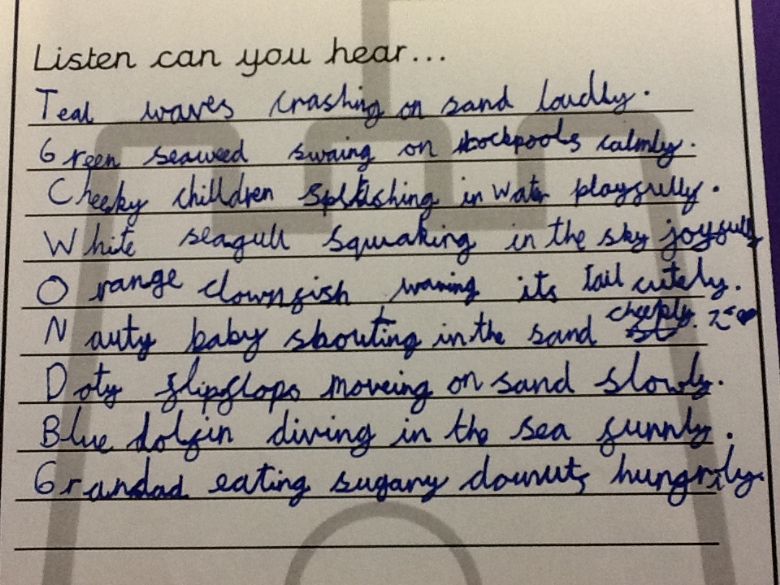 Listen can you hear...
Teal waves crashing on sand loudly.
Green seaweed swaing on rockpools calmly.
Cheeky chilldren splashing in water playfully.
White seagull squaking in the sky joyfully
Orange clownfish waving its tail cutely.
Nauty baby shouting in the sand cheekly.
Doty flipflops moveing on sand slowly.
Blue dolfin diving in the sea funnly.
Grandad eating sugary dounuts hungrily.